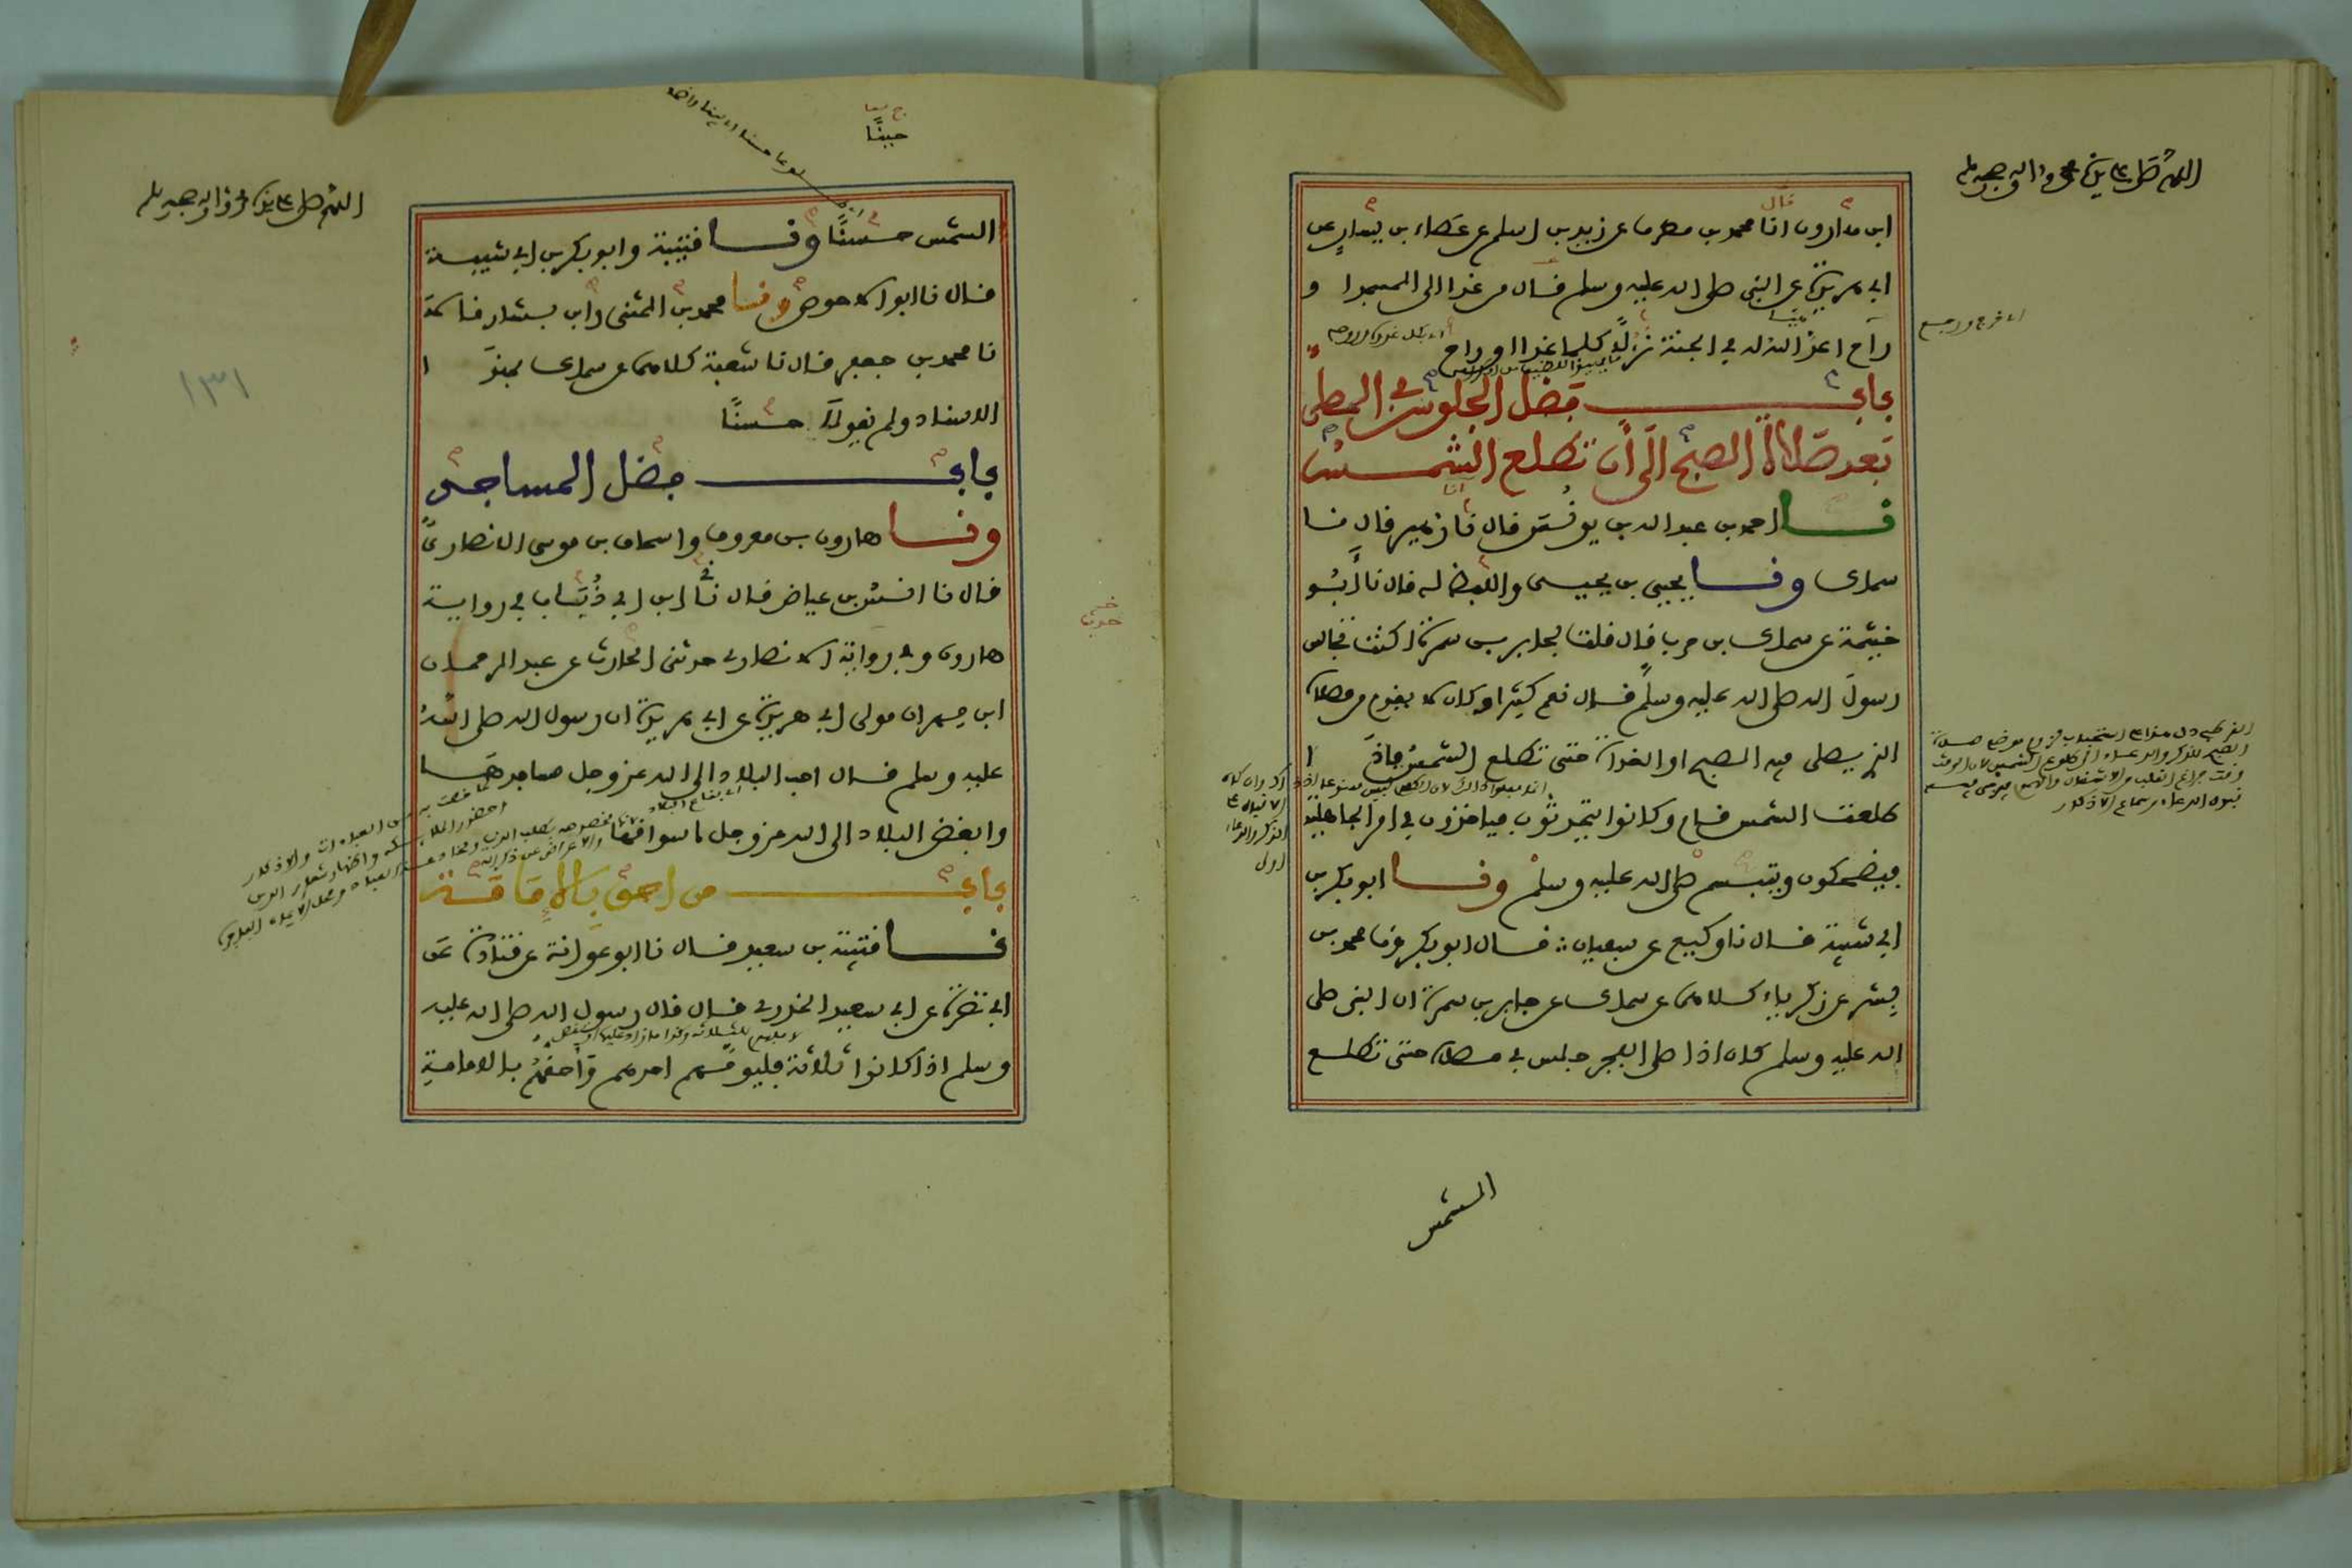 اللهم صل على سيدنا محمد وءاله وصحبه وسلم
قال
ابن هارون انا محمد بن مطرف عن زيد بن اسلم عن عطاء بن يسار عن
ابي هريرة عن النبي صلى الله عليه وسلم قال من غدا الى المسجد او
راح اعد الله له في الجنة نزلا كلما غدا او راح
اي خرج ورجع
باب فضل الجلوس في المصلى
بعد صلاة الصبح الى أن تطلع الشمس
نا احمد بن عبد الله بن يونس قال نا زهير قال نا
سماك ونا يحيى بن يحيى واللفظ له قال نا أبو
خيثمة عن سماك بن حرب قال قلت لجابر بن سمرة اكنت تجالس
رسول الله صلى الله عليه وسلم قال نعم كثيرا وكان لا يقوم من مصلاه
الذي يصلي فيه الصبح او الغداة حتى تطلع الشمس فاذا
طلعت الشمس قام وكانوا يتحدثون فياخذون في امر الجاهلية
فيضحكون ويتبسم صلى الله عليه وسلم ونا ابو بكر بن
ابي شيبة قال نا وكيع عن سفيان قال ابو بكر ونا محمد بن
بشر عن زكرياء كلاهما عن سماك عن جابر بن سمرة ان النبي صلى
الله عليه وسلم كان اذا صلى الفجر جلس في مصلاه حتى تطلع
الشمس
اللهم صل على سيدنا محمد وءاله وصحبه وسلم
الشمس حسنًا ونا قتيبة وابو بكر بن ابي شيبة
قال نا ابو الاحوص ونا محمد بن المثنى وابن بشار قالا
نا محمد بن جعفر قال نا شعبة كلاهما عن سماك بهذا
الاسناد ولم يقولا حسنًا
١٣١
باب فضل المساجد
ونا هارون بن معروف واسحاق بن موسى الانصاري
قال نا انس بن عياض قال نا ابن ابي ذباب في رواية
هارون وفي رواية الانصاري حدثني الحارث عن عبد الرحمان
ابن مهران مولى ابي هريرة عن ابي هريرة ان رسول الله صلى الله
عليه وسلم قال احب البلاد الى الله عز وجل مساجدها
وابغض البلاد الى الله عز وجل اسواقها
باب من احق بالامامة
نا قتيبة بن سعيد قال نا ابو عوانة عن قتادة عن
ابي نضرة عن ابي سعيد الخدري قال قال رسول الله صلى الله عليه
وسلم اذا كانوا ثلاثة فليؤمهم احدهم وأحقهم بالامامة